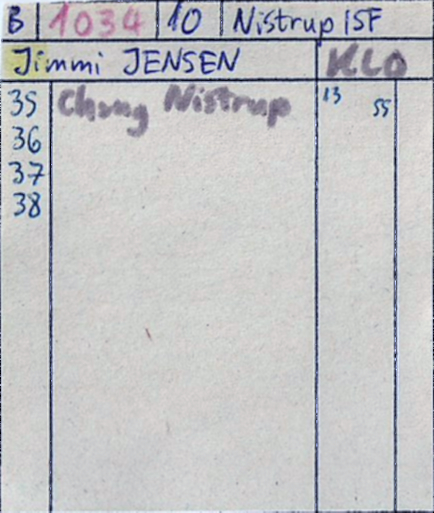 B 1034 10 Nistrup ISF
Jimmi JENSEN KLO
35 Chang Nistrup 13 55
36
37
38